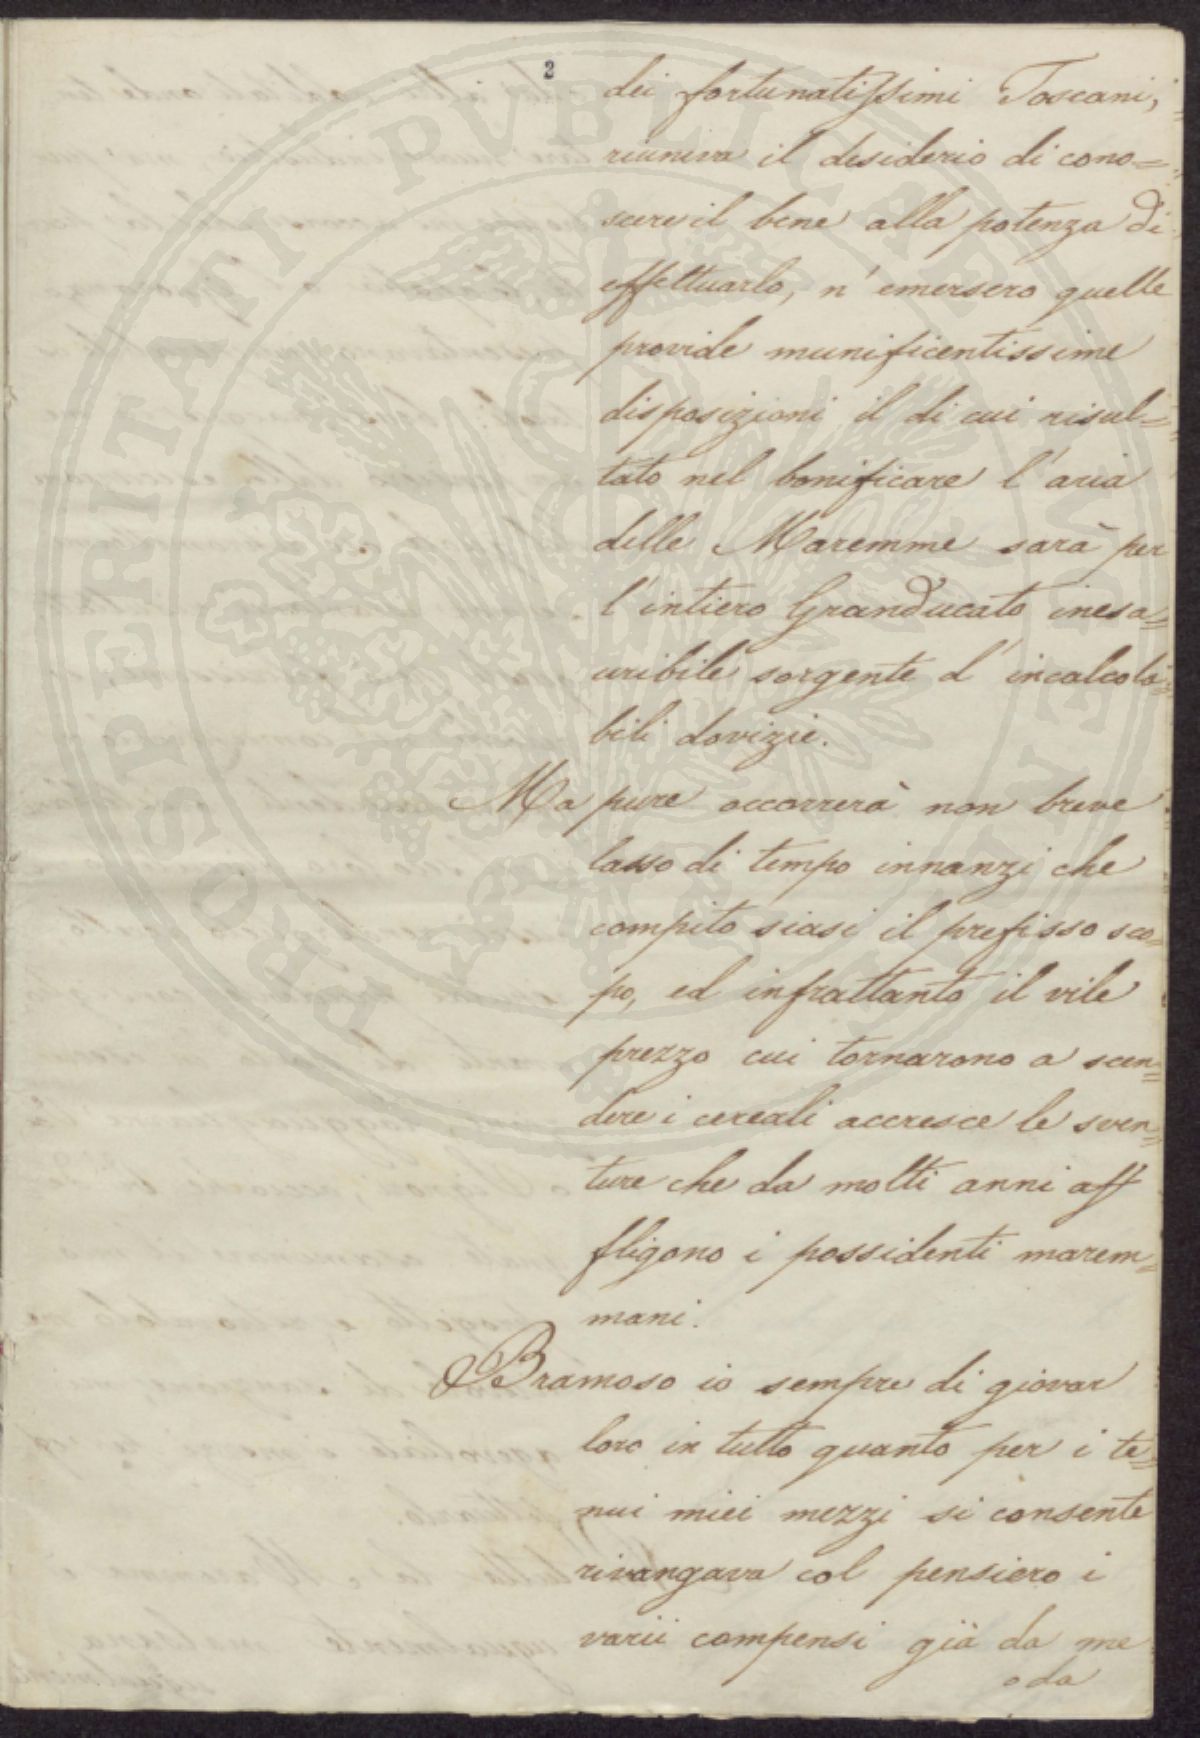 2
dei fortunatissimi Toscani,
riuniva il desiderio di cono=
scere il bene alla potenza di
effettuarlo, n' emersero quelle
provide munificentissime
disposizioni il di cui risul=
tato nel bonificare l' aria
delle Maremme sarà per
l' intiero Granducato inesa=
uribile sorgente d' incalcola=
bili dovizie.
Ma pure occorrerà non breve
lasso di tempo innanzi che
compito siasi il prefisso sco=
po, ed infrattanto il vile
prezzo cui tornarono a scen=
dere i cereali accresce le sven=
ture che da molti anni aff
fligono i possidenti marem=
mani.
Bramoso io sempre di giovar
loro in tutto quanto per i te=
nui miei mezzi si consente
rivangava col pensiero i
varii compensi già da me
o da
PROSPERITATI PVBLICAE AVGENDAE